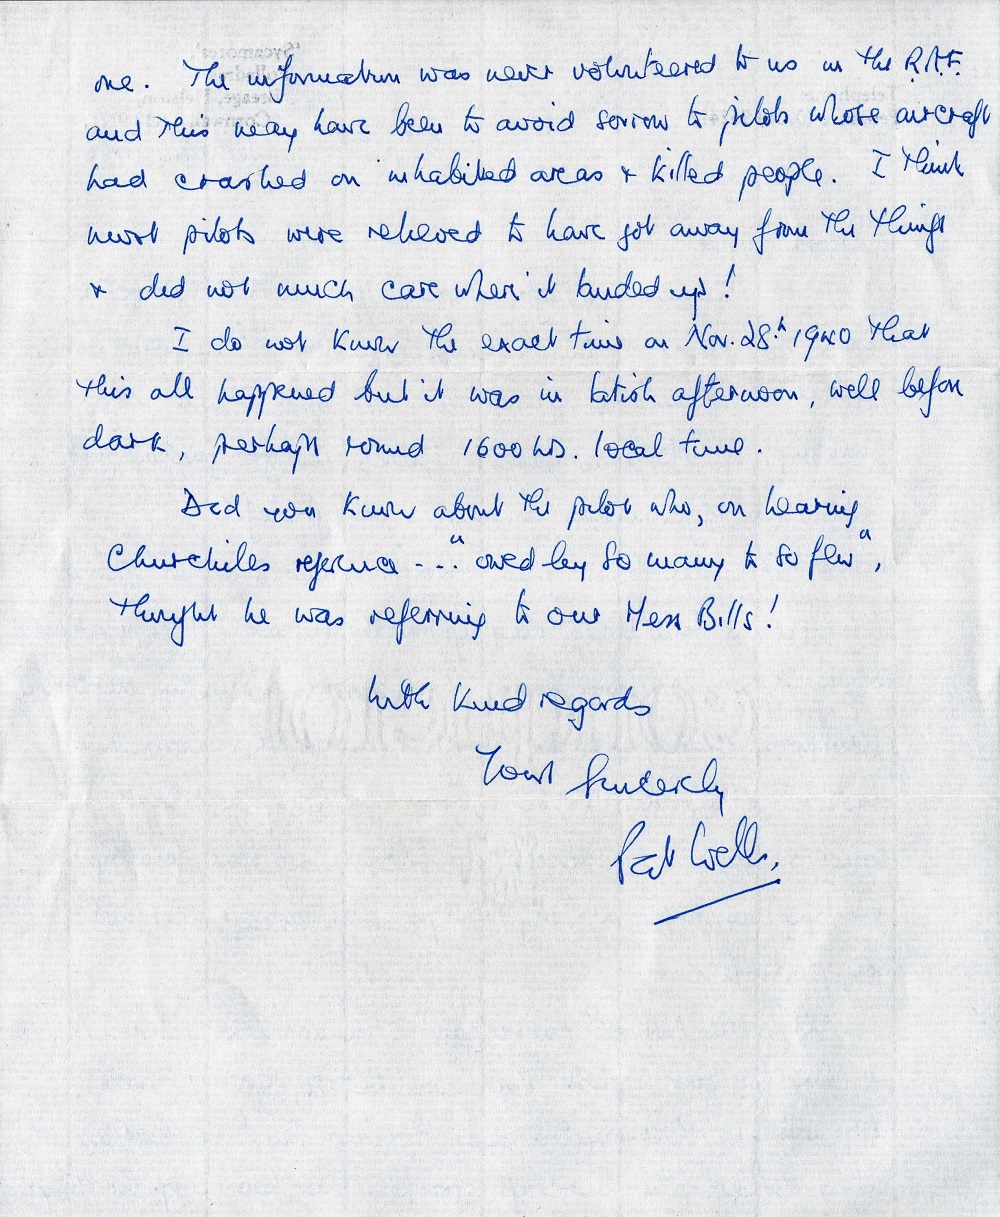 one. The information was never volunteered to us in the R.A.F.
and this may have been to avoid sorrow to pilots whose aircraft
had crashed on inhabited areas & killed people. I think
most pilots were relieved to have got away from the things
& did not much care where it landed up!
I do not know the exact time on Nov. 28th 1940 that
this all happened but it was in latish afternoon, well before
dark, perhaps round 1600 hrs. local time.
Did you know about the pilot who, on hearing
Churchills reference --- "owed by so many to so few",
thought he was referring to our Mess Bills!
With kind regards
Yours Sincerely
Pat Wells.
'Sycamores'